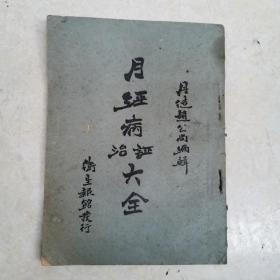 丹徒趙公尚編輯
月經病証治大全
衛生報館發行